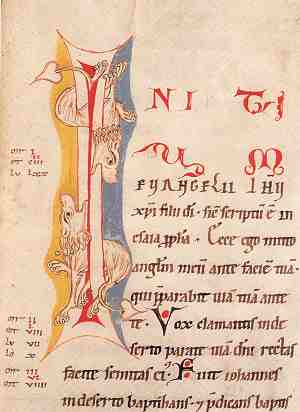 I N I TI
U M
EVANGELII IHU
xpi filii di · sic scriptu e in
esaia ppha · Ecce ego mitto
anglm meu ante facie tua·
qui pparabit uia tua ante
te · Vox clamantis in de
serto parate uia dni rectas
facite semitas ei · Fuit iohannes
in deserto baptizans · & pdicans baptis